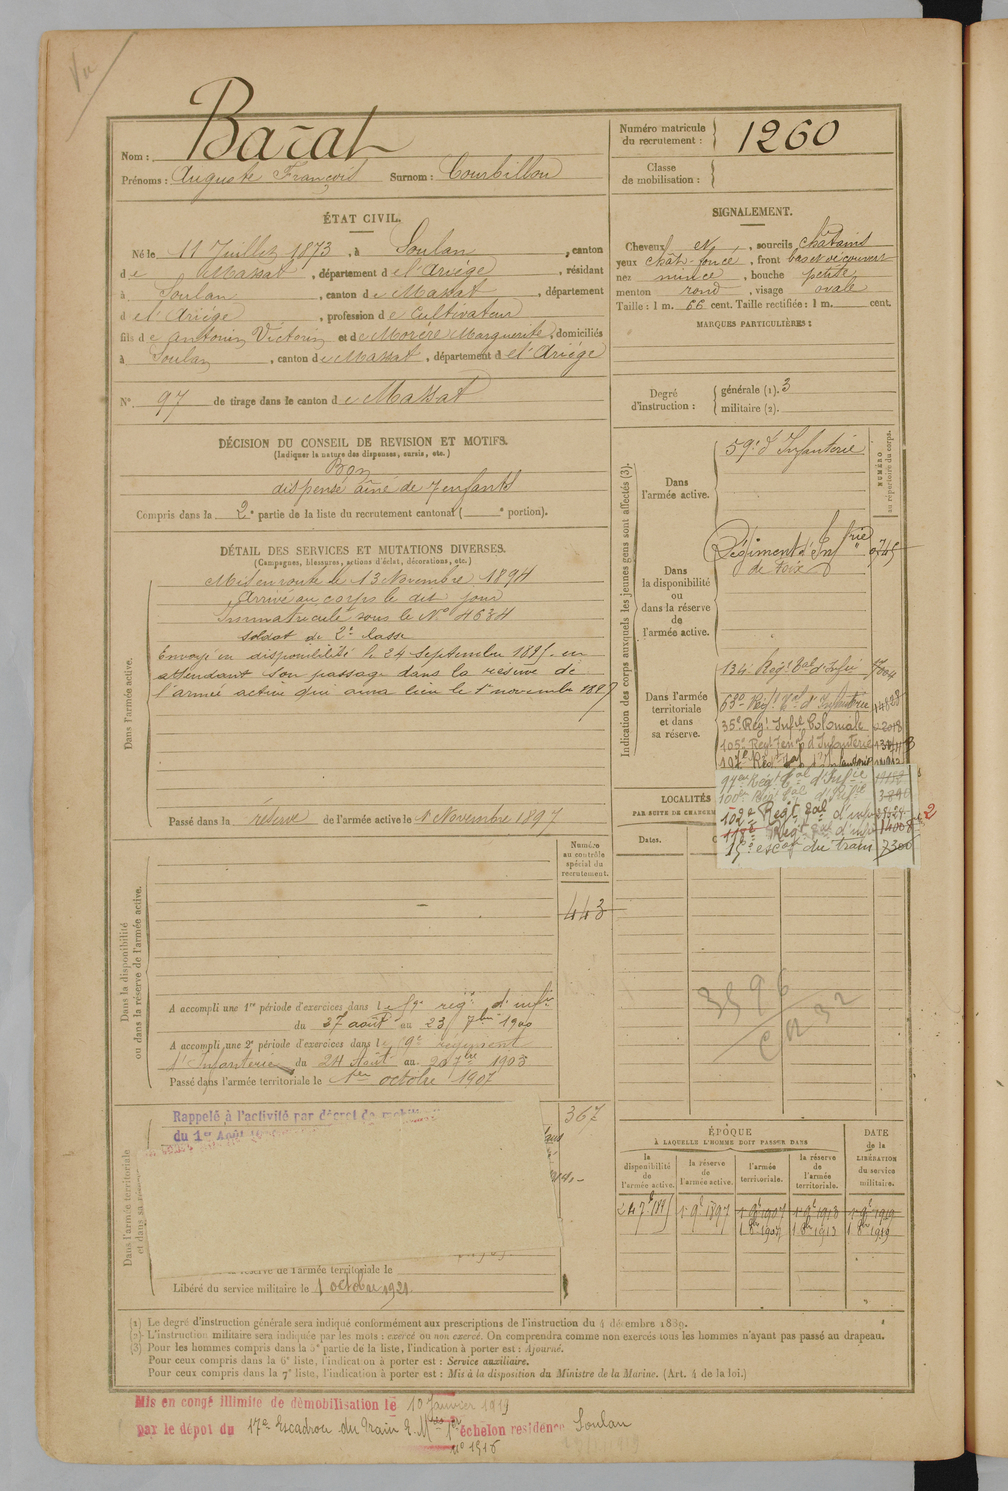 Vu
Nom : Bazat
Prénoms : Auguste François Surnom : Courbillou
Numéro matricule du recrutement : 1260
Classe de mobilisation :
ÉTAT CIVIL.
Né le 11 Juillet 1873, à Soulan, canton
de Massat, département de l'Ariége, résidant
à Soulan, canton de Massat, département
de l'Ariége, profession de Cultivateur
fils de Antonin Victorin et de Morére Marguerite, domiciliés
à Soulan, canton de Massat, département de l'Ariége
N° 97 de tirage dans le canton de Massat
SIGNALEMENT.
Cheveux et, sourcils châtains
yeux chât-foncé, front bas et découvert
nez mince, bouche petite
menton rond, visage ovale
Taille : 1 m. 66 cent. Taille rectifiée : 1 m. cent.
MARQUES PARTICULIÈRES :
Degré d'instruction : générale (1). 3
militaire (2).
DÉCISION DU CONSEIL DE REVISION ET MOTIFS.
(Indiquer la nature des dispenses, sursis, etc.)
Bon
dispensé aîné de 7 enfants
Compris dans la 2e partie de la liste du recrutement cantonal ( e portion).
DÉTAIL DES SERVICES ET MUTATIONS DIVERSES.
(Campagnes, blessures, actions d'éclat, décorations, etc.)
Dans l'armée active.
Mis en route le 13 Novembre 1894
Arrivé au corps le dit jour
Immatriculé sous le No 4634
Soldat de 2e classe
Envoyé en disponibilité le 24 Septembre 1895 en
attendant son passage dans la réserve de
l'armée active qui aura lieu le 1er novembre 1897
Passé dans la réserve de l'armée active le 1 Novembre 1897
Indication des corps auxquels les jeunes gens sont affectés (3).
NUMÉRO au répertoire du corps.
Dans l'armée active.
59e d'Infanterie
Dans la disponibilité ou dans la réserve de l'armée active.
Régiment d'Infrie de Foix
Dans l'armée territoriale et dans sa réserve.
134e Regt Tal d'Infie
63e Régt Tal d'Infanterie 14828
35e Régt Infie Coloniale 22018
105e Regt Terral d'Infanterie
107e Régt Tal d'Infanterie
97e Régt Tal d'Infie
100e Régt Tal d'Infie
102e Régt Tal d'infie
118e Régt Tal d'infie
15e escon du train 7300
2
LOCALITÉS
PAR SUITE DE CHANGE
Dates.
Dans la disponibilité ou dans la réserve de l'armée active.
Numéro au contrôle spécial du recrutement.
443
3596
A accompli une 1re période d'exercices dans le 59e regt d'infie
du 27 août au 23 7bre 1900
A accompli une 2e période d'exercices dans le 59e régiment
d'Infanterie du 24 Août au 20 7bre 1903
Passé dans l'armée territoriale le 1er octobre 1907
Dans l'armée territoriale et dans sa réserve
Rappelé à l'activité par décret de
du 1er Août
367
réserve de l'armée territoriale le
Libéré du service militaire le 1 octobre 1921
ÉPOQUE
À LAQUELLE L'HOMME DOIT PASSER DANS
DATE de la LIBÉRATION du service militaire.
la disponibilité de l'armée active.
la réserve de l'armée active.
l'armée territoriale.
la réserve de l'armée territoriale.
24 7bre 1895 1 9bre 1897 1 9bre 1907 1 9bre 1913 1 9bre 1919
1 8bre 1907 1 8bre 1913 1 8bre 1919
(1) Le degré d'instruction générale sera indiqué conformément aux prescriptions de l'instruction du 4 décembre 1889.
(2) L'instruction militaire sera indiquée par les mots : exercé ou non exercé. On comprendra comme non exercés tous les hommes n'ayant pas passé au drapeau.
(3) Pour les hommes compris dans la 5e partie de la liste, l'indication à porter est : Ajourné.
Pour ceux compris dans la 6e liste, l'indication à porter est : Service auxiliaire.
Pour ceux compris dans la 7e liste, l'indication à porter est : Mis à la disposition du Ministre de la Marine. (Art. 4 de la loi.)
Mis en congé illimité de démobilisation le 10 Janvier 1919
par le dépot du 17e Escadron du Train échelon residence Soulan